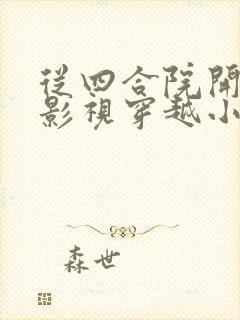 從四合院開
影視穿越小
森世